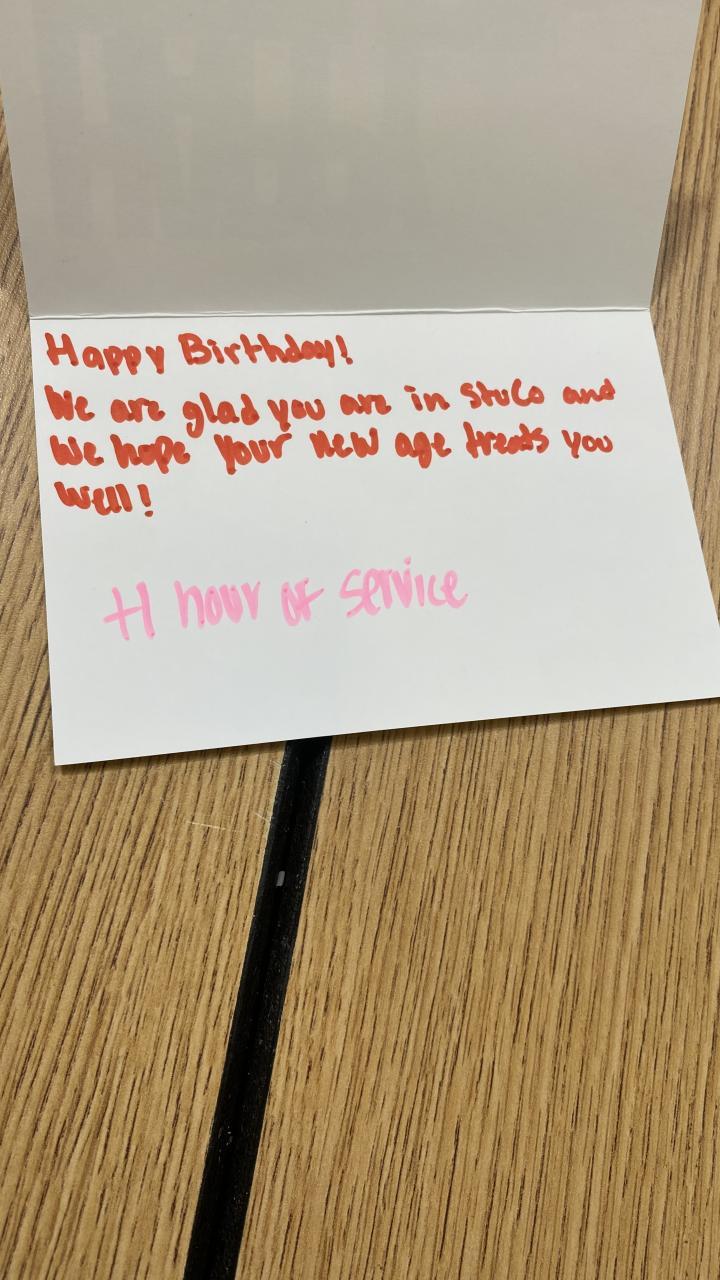 Happy Birthday!
We are glad you are in StuCo and
We hope your new age treats you
well!
+1 hour of service